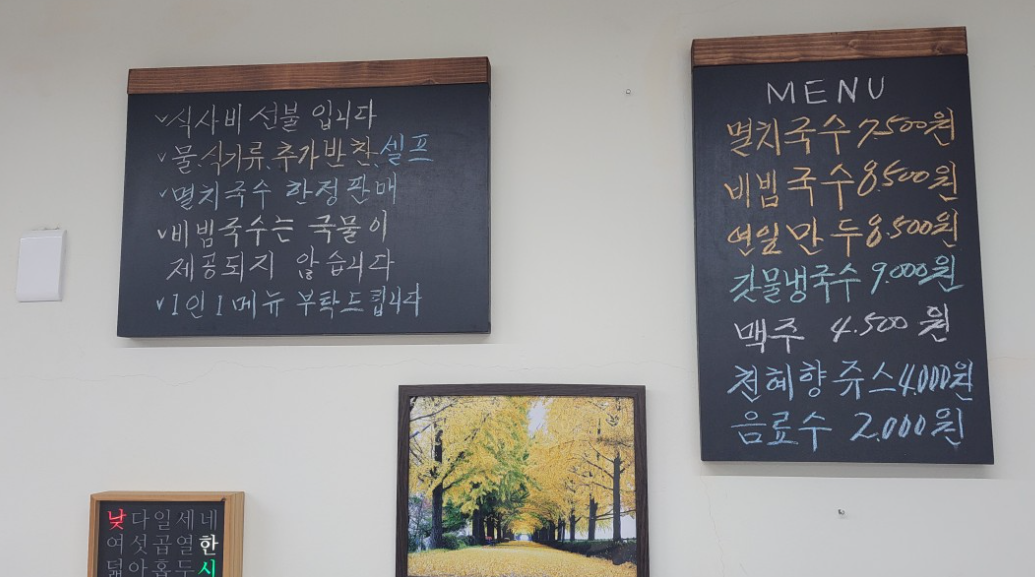 ✓식사비 선불 입니다
✓물.식기류.추가반찬.셀프
✓멸치국수 한정판매
✓비빔국수는 국물이
제공되지 않습니다
✓1인 1메뉴 부탁드립니다
MENU
멸치국수 7.500원
비빔국수 8500원
연일만두 8.500원
갓물냉국수 9.000원
맥주 4.500원
천혜향쥬스 4.000원
음료수 2.000원
낮다일세네
여섯곱열한
덟아홉두시